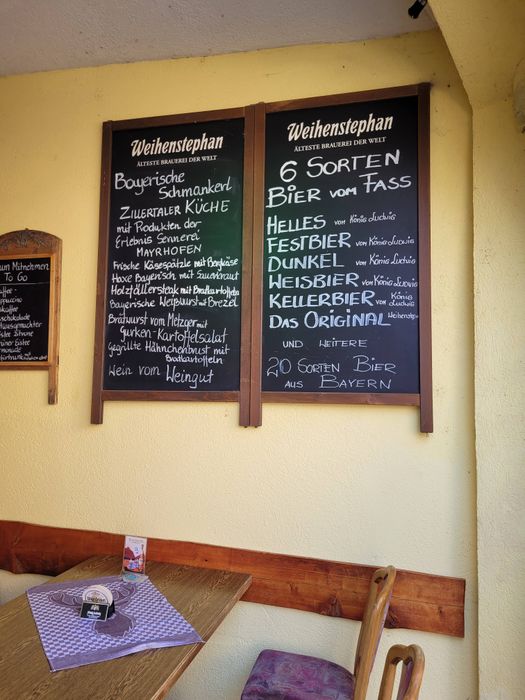 Weihenstephan
ÄLTESTE BRAUEREI DER WELT
Bayerische
Schmankerl
ZILLERTALER KÜCHE
mit Produkten der
Erlebnis Sennerei
MAYRHOFEN
Frische Käsespätzle mit Bergkäse
Haxe Bayerisch mit Sauerkraut
Holzfällersteak mit Bratkartoffeln
Bayerische Weißwurst mit Brezel
Bratwurst vom Metzger mit
Gurken-Kartoffelsalat
gegrillte Hähnchenbrust mit
Bratkartoffeln
Wein vom Weingut
Weihenstephan
ÄLTESTE BRAUEREI DER WELT
6 SORTEN
BIER VOM FASS
HELLES von König Ludwig
FESTBIER von König Ludwig
DUNKEL von König Ludwig
WEISBIER von König Ludwig
KELLERBIER von König
Ludwig
DAS ORIGINAL Weihenstephan
UND WEITERE
20 SORTEN BIER
AUS BAYERN
um Mitnehmen
To Go